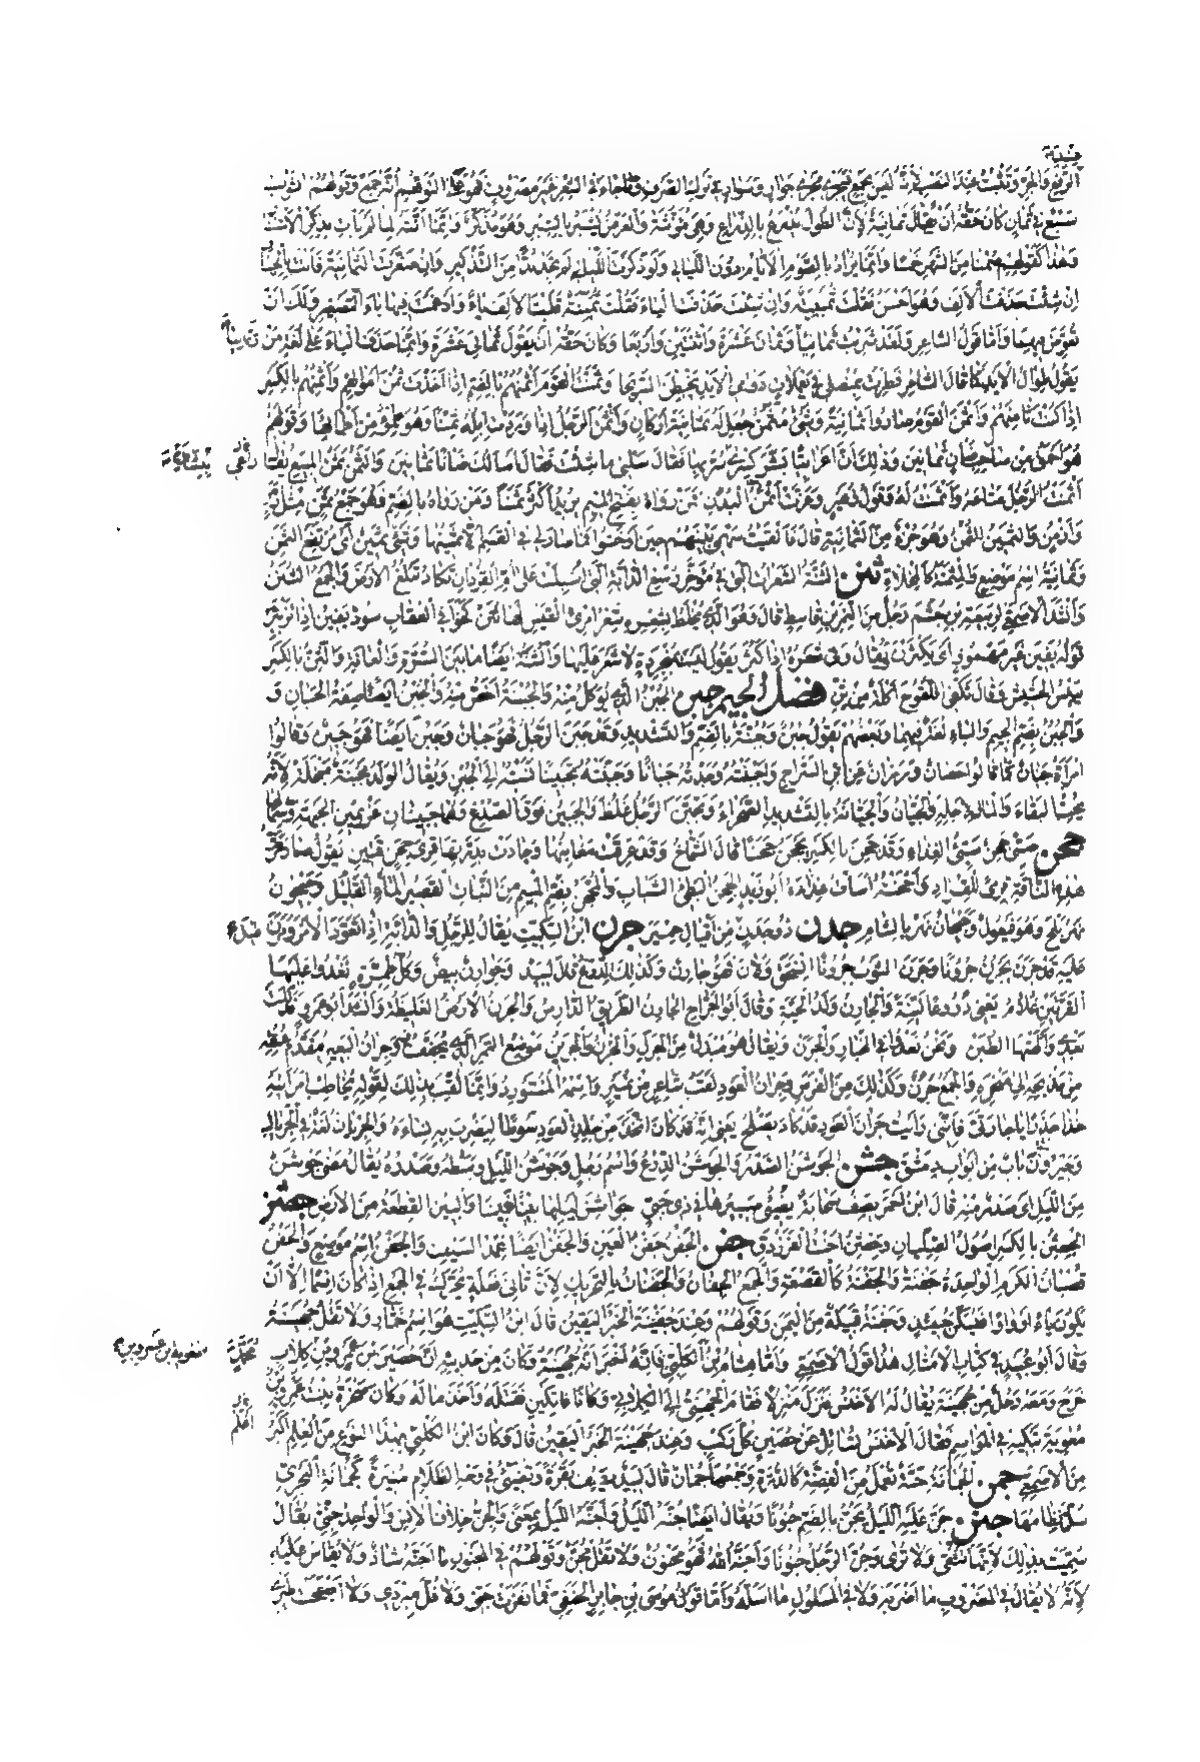 الرفع والجر وتثبت عند النصب لأنه ليس بجمع فيجري مجرى جوار وسوار في ترك الصرف وما جاء في الشعر غير مصروف فهو على التوهم أنه جمع وقولهم الثوب
سبع في ثمان كان حقه أن يقال ثمانية لأن الطول يذرع بالذراع وهي مؤنثة والعرض يشبر بالشبر وهو مذكر وإنما أنثه لما لم يأت بذكر الأشبار
وهذا كقولهم صمنا من الشهر خمسا وإنما يراد بالصوم الأيام دون الليالي ولو ذكرت الليالي لم تجد بدا من التذكير وإن صغرت الثمانية فأنت بالخيار
إن شئت حذفت الألف وهو أحسن فقلت ثمينية وإن شئت حذفت الياء فقلت ثمينة قلبت الألف ياء وأدغمت فيها ياء التصغير ولك أن
تعوض فيهما وأما قول الشاعر ولقد شربت ثمانيا وثمان عشرة واثنتين وأربعا وكان حقه أن يقول ثماني عشرة وإنما حذفت الياء على لغة من
يقول طوال الأيد كما قال الشاعر فطرت بمنصلي في يعملات دوامي الأيد يخبطن السريحا وثمنت القوم أثمنهم بالضم إذا أخذت ثمن أموالهم وأثمنهم بالكسر
إذا كنت ثامنهم وأثمن القوم صاروا ثمانية وشيء مثمن جعل له ثمانية أركان وأثمن الرجل إذا وردت إبله ثمنا وهو ظمء من أظمائها وقولهم
هو أحمق من صاحب ضأن ثمانين وذلك أن أعرابيا بشر كسرى ببشرى سر بها فقال سلني ما شئت فقال أسألك ضأنا ثمانين والثمن ثمن المبيع يقال
أثمنت الرجل متاعه وأثمنت له وقول زهير وعزت أثمن البدن من رواه بفتح الميم يريد أكثر ثمنا ومن رواه بالضم فهو جمع ثمن مثل زمن
وأزمن والثمين الثمن وهو جزء من الثمانية قال فألقيت سهمي بينهم حين أوخشوا فما صار لي في القسم إلا ثمينها وشيء ثمين أي مرتفع الثمن
وثمانية اسم موضع والمثمنة كالمخلاة ثنن الثنة الشعرات التي في مؤخر رسغ الدابة التي أسبلت على أم القردان تكاد تبلغ الأرض والجمع الثنن
وأنشد الأصمعي لربيعة بن جشم رجل من النمر بن قاسط قال وهو الذي يخلط بشعره شعر امرئ القيس لها ثنن كخوافي العقاب سود يفين إذا تزبئر
قوله يفين غير مهموز أي يكثرن يقال وفى شعره إذا كثر يقول ليست بمنجردة لا شعر عليها والثنة أيضا ما بين السرة والعانة والثن بالكسر
يبيس الحشيش وقال تكفي اللقوح أكلة من ثن فصل الجيم جبن الجبن الذي يؤكل منه والجبنة أخص منه والجبن أيضا صفة الجبان
والجبن بضم الجيم والباء لغة فيهما وبعضهم يقول جبن وجبنة بالضم والتشديد وقد جبن الرجل فهو جبان وجبن أيضا فهو جبين وقالوا
امرأة جبان كما قالوا حصان ورزان عن ابن السراج وأجبنته وجدته جبانا وجبنته تجبينا نسبته إلى الجبن ويقال الولد مجبنة مبخلة لأنه
يحب البقاء والمال لأجله والجبان والجبانة بالتشديد الصحراء وتجبن الرجل غلظ والجبين فوق الصدغ وهما جبينان عن يمين الجبهة وشمالها
جحن صبي جحن سيئ الغذاء وقد جحن بالكسر يجحن جحنا قال الشماخ وقد عرقت مغابنها وجادت بدرتها قرى جحن قتين يقول صار عرق
هذه الناقة قرى للقراد وأجحنته أسأت غذاءه أبو زيد الجحن البطيء الشباب والمجحن بضم الميم من النبات القصير القليل الماء وجيحون
نهر بلخ وهو فيعول وجيحان نهر بالشام جدن ذو جدن من أقيال حمير جرن ابن السكيت يقال للرجل والدابة إذا تعود الأمر ومرن
عليه قد جرن يجرن جرونا وجرن الثوب جرونا انسحق ولان فهو جارن وكذلك الدرع قال لبيد وجوارن بيض وكل طمرة يعدو عليها
القرتين غلام يعني دروعا لينة والجارن ولد الحية وقال أبو الجراح الجارن الطريق الدارس والجرن الأرض الغليظة وأنشد أبو عمرو تدكلت
بعدي وألهتها الطبن ونحن نعدو في الخبار والجرن ويقال هو مبدل من الجرل والجرن والجرين موضع التمر الذي يجفف فيه وجران البعير مقدم عنقه
من مذبحه إلى منحره والجمع جرن وكذلك من الفرس وجران العود لقب شاعر من نمير واسمه المستورد وإنما لقب بذلك لقوله يخاطب امرأتيه
خذا حذرا يا جارتي فإنني رأيت جران العود قد كاد يصلح يعني أنه قد كان اتخذ من جلد العود سوطا ليضرب به نساءه والجريان لغة في الجريال
وجيرون باب من أبواب دمشق جشن الجوشن الصدر والجوشن الدرع واسم رجل وجوشن الليل وسطه وصدره يقال مضى جوشن
من الليل أي صدر منه قال ابن أحمر يصف سحابة يضيء صبيرها في ذي حبي جواشن ليلها بينا فبينا والبين القطعة من الأرض جعثن
الجعثن بالكسر أصول الصليان وجعثن أخت الفرزدق جفن الجفن جفن العين والجفن أيضا غمد السيف والجفن اسم موضع والجفن
قضبان الكرم الواحدة جفنة والجفنة كالقصعة والجمع الجفان والجفنات بالتحريك لأن ثاني فعلة يحرك في الجمع إذا كان اسما إلا أن
يكون ياء أو واوا فيسكن حينئذ وجفنة قبيلة من اليمن وقولهم وعند جفينة الخبر اليقين قال ابن السكيت هو اسم خمار ولا تقل جهينة
وقال أبو عبيد في كتاب الأمثال هذا قول الأصمعي وأما هشام بن الكلبي فإنه أخبر أنه جهينة وكان من حديثه أن حصين بن عمرو بن كلاب
خرج ومعه رجل من جهينة يقال له الأخنس فنزلا منزلا فقام الجهني إلى الكلابي وكانا فاتكين فقتله وأخذ ماله وكان صخرة بنت عمرو بن
معوية تبكيه في المواسم فقال الأخنس تسائل عن حصين كل ركب وعند جهينة الخبر اليقين قال وكان ابن الكلبي بهذا النوع من العلم أكبر
من الأصمعي جمن الجمانة حبة تعمل من الفضة كالدرة وجمعها جمان قال لبيد يصف بقرة وتضيء في وجه الظلام منيرة كجمانة البحري
سل نظامها جنن جن عليه الليل يجن بالضم جنونا ويقال أيضا جنه الليل وأجنه الليل بمعنى والجن خلاف الإنس والواحد جني يقال
سميت بذلك لأنها تتقى ولا ترى وجن الرجل جنونا وأجنه الله فهو مجنون ولا تقل مجن وقولهم في المجنون ما أجنه شاذ ولا يقاس عليه
لأنه لا يقال في المضروب ما أضربه ولا في المسلول ما أسله وأما قول موسى بن جابر الحنفي فما نفرت جني ولا فل مبردي ولا أصبحت طير